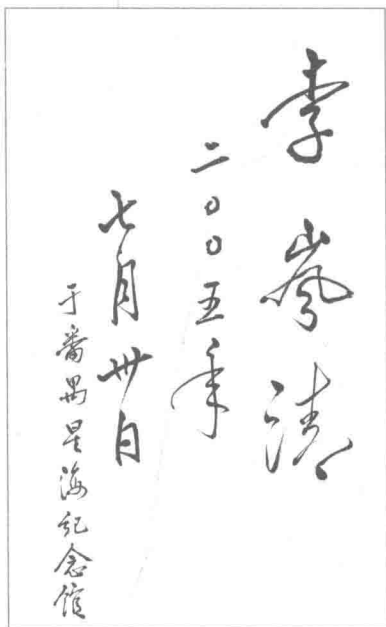 李岚清
二00五年
七月卅日
于番禺星海纪念馆